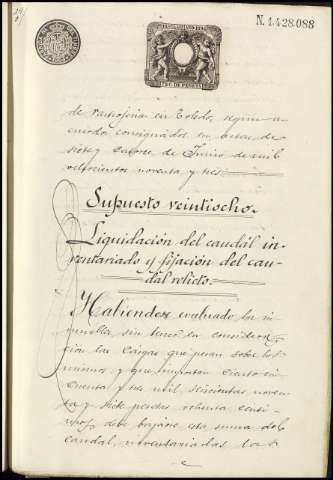 N. 1.428.088
de
en Toledo, según
consignados en
siete y catorce de Junio de mil
ochocientos noventa y tres
Supuesto veintiocho.
Liquidación del caudál in-
ventariado y fijación del cau-
dal relicto.
Habiendose evaluado los in-
muebles sin tener en considera-
ción las cargas que pesan sobre los
mismos y que importan ciento cin-
cuenta y tres mil seiscientas noven-
ta y siete pesetas ochenta centi-
mos, debe bajarse esta suma del
caudal, inventariadas las